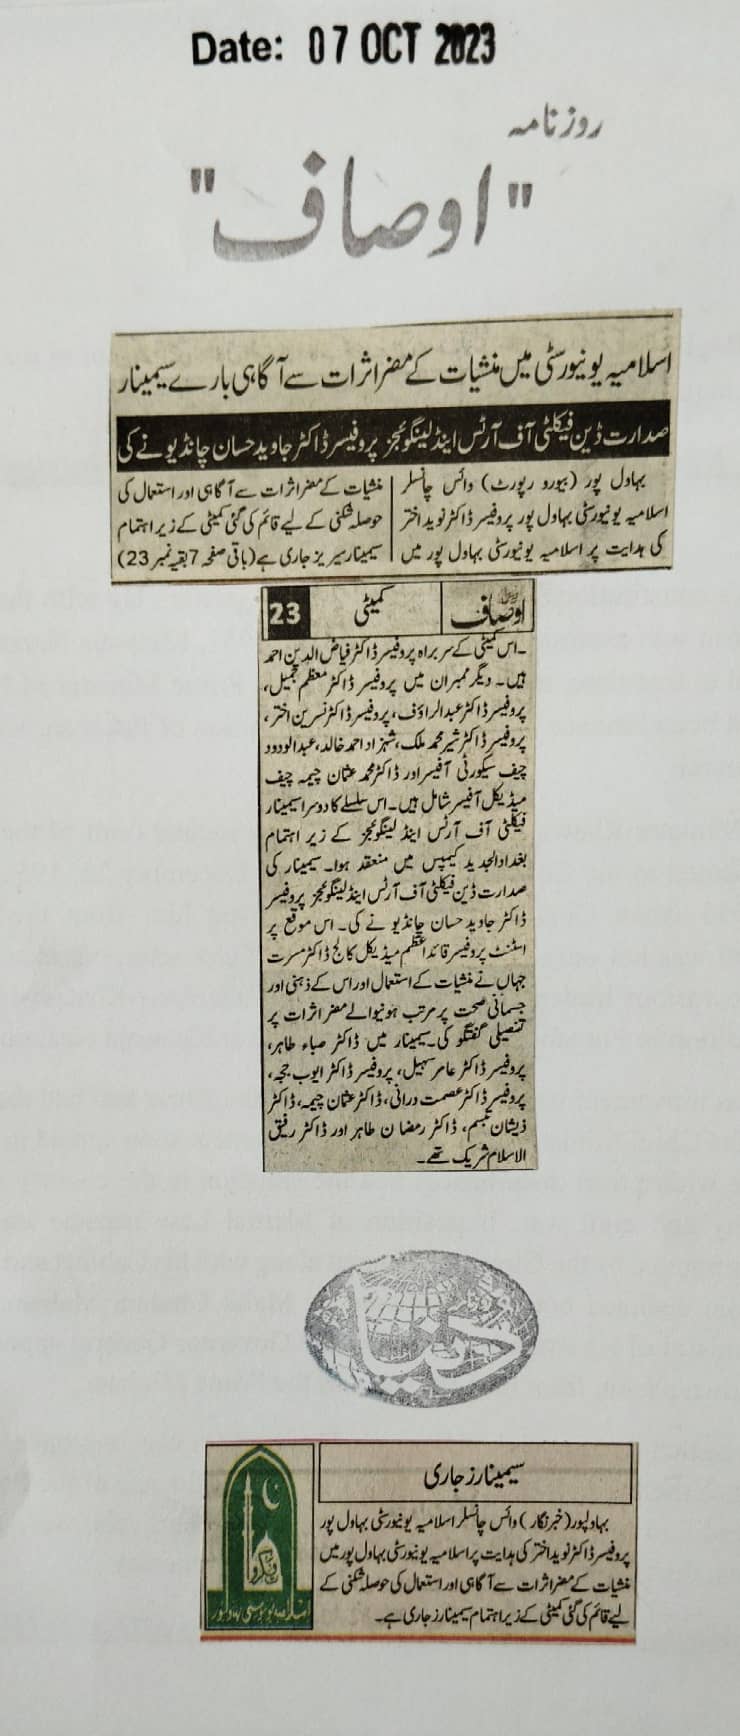 Date: 07 OCT 2023
روزنامہ
"اوصاف"
اسلامیہ یونیورسٹی میں منشیات کے مضر اثرات سے آگاہی بارے سیمینار
صدارت ڈین فیکلٹی آف آرٹس اینڈ لینگوئجز پروفیسر ڈاکٹر جاوید حسان چانڈیو نے کی
بہاول پور (بیورو رپورٹ) وائس چانسلر
اسلامیہ یونیورسٹی بہاول پور پروفیسر ڈاکٹر نوید اختر
کی ہدایت پر اسلامیہ یونیورسٹی بہاول پور میں
منشیات کے مضر اثرات سے آگاہی اور استعمال کی
حوصلہ شکنی کے لیے قائم کی گئی کمیٹی کے زیر اہتمام
سیمینار سیریز جاری ہے (باقی صفحہ 7 بقیہ نمبر 23)
اوصاف کمیٹی 23
۔اس کمیٹی کے سربراہ پروفیسر ڈاکٹر فیاض الدین احمد
ہیں۔ دیگر ممبران میں پروفیسر ڈاکٹر معظم جمیل،
پروفیسر ڈاکٹر عبدالرؤف، پروفیسر ڈاکٹر نسرین اختر،
پروفیسر ڈاکٹر شیر محمد ملک، شہزاد احمد خالد، عبدالودود
چیف سیکورٹی آفیسر اور ڈاکٹر محمد عثمان چیمہ چیف
میڈیکل آفیسر شامل ہیں۔ اس سلسلے کا دوسرا سیمینار
فیکلٹی آف آرٹس اینڈ لینگوئجز کے زیر اہتمام
بغداد الجدید کیمپس میں منعقد ہوا۔ سیمینار کی
صدارت ڈین فیکلٹی آف آرٹس اینڈ لینگوئجز پروفیسر
ڈاکٹر جاوید حسان چانڈیو نے کی۔ اس موقع پر
اسٹنٹ پروفیسر قائد اعظم میڈیکل کالج ڈاکٹر مسرت
جہاں نے منشیات کے استعمال اور اس کے ذہنی اور
جسمانی صحت پر مرتب ہونیوالے مضر اثرات پر
تفصیلی گفتگو کی۔ سیمینار میں ڈاکٹر صباء طاہر،
پروفیسر ڈاکٹر عامر سہیل، پروفیسر ڈاکٹر ایوب ججہ،
پروفیسر ڈاکٹر عصمت درانی، ڈاکٹر عثمان چیمہ، ڈاکٹر
ذیشان تبسم، ڈاکٹر رمضان طاہر اور ڈاکٹر رفیق
الاسلام شریک تھے۔
دنیا
سیمینارز جاری
بہاولپور (خبرنگار) وائس چانسلر اسلامیہ یونیورسٹی بہاول پور
پروفیسر ڈاکٹر نوید اختر کی ہدایت پر اسلامیہ یونیورسٹی بہاول پور میں
منشیات کے مضر اثرات سے آگاہی اور استعمال کی حوصلہ شکنی کے
لیے قائم کی گئی کمیٹی کے زیر اہتمام سیمینارز جاری ہے۔